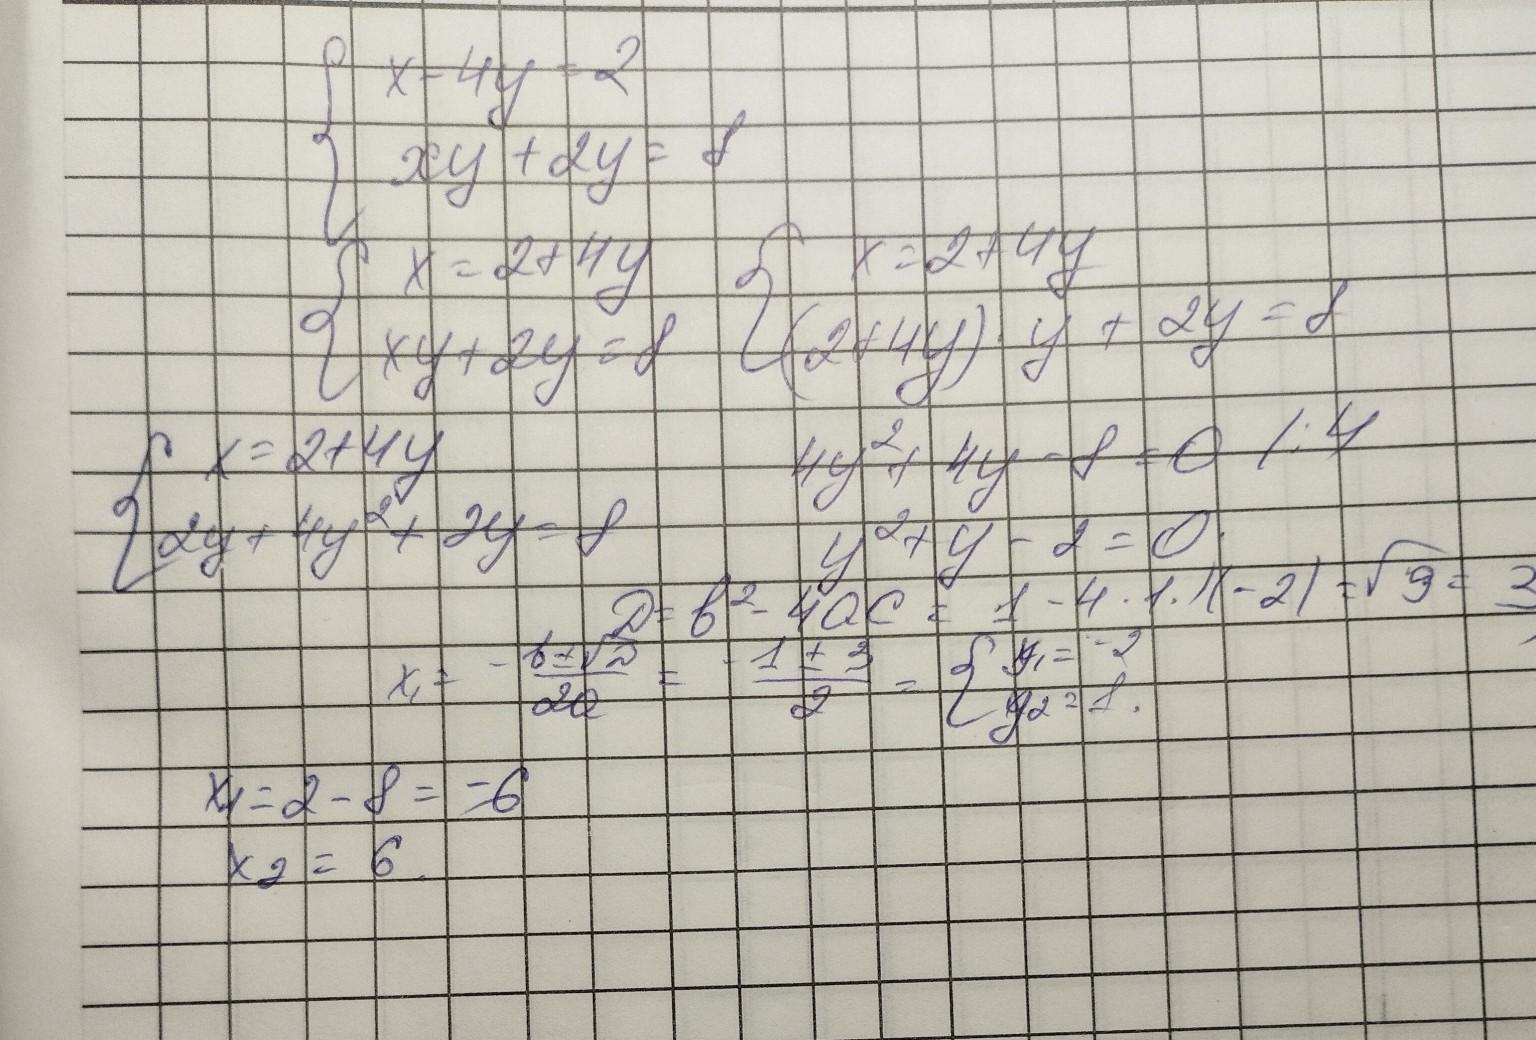 x - 4y = 2
xy + 2y = 8
x = 2 + 4y
xy + 2y = 8
x = 2 + 4y
(2 + 4y) · y + 2y = 8
x = 2 + 4y
2y + 4y² + 2y = 8
4y² + 4y - 8 = 0 /: 4
y² + y - 2 = 0.
D = b² - 4ac = 1 - 4 · 1 · (-2) = √9 = 3
x₁ = -b ± √D / 2a = -1 ± 3 / 2 = { y₁ = -2
y₂ = 1.
x₁ = 2 - 8 = -6
x₂ = 6.